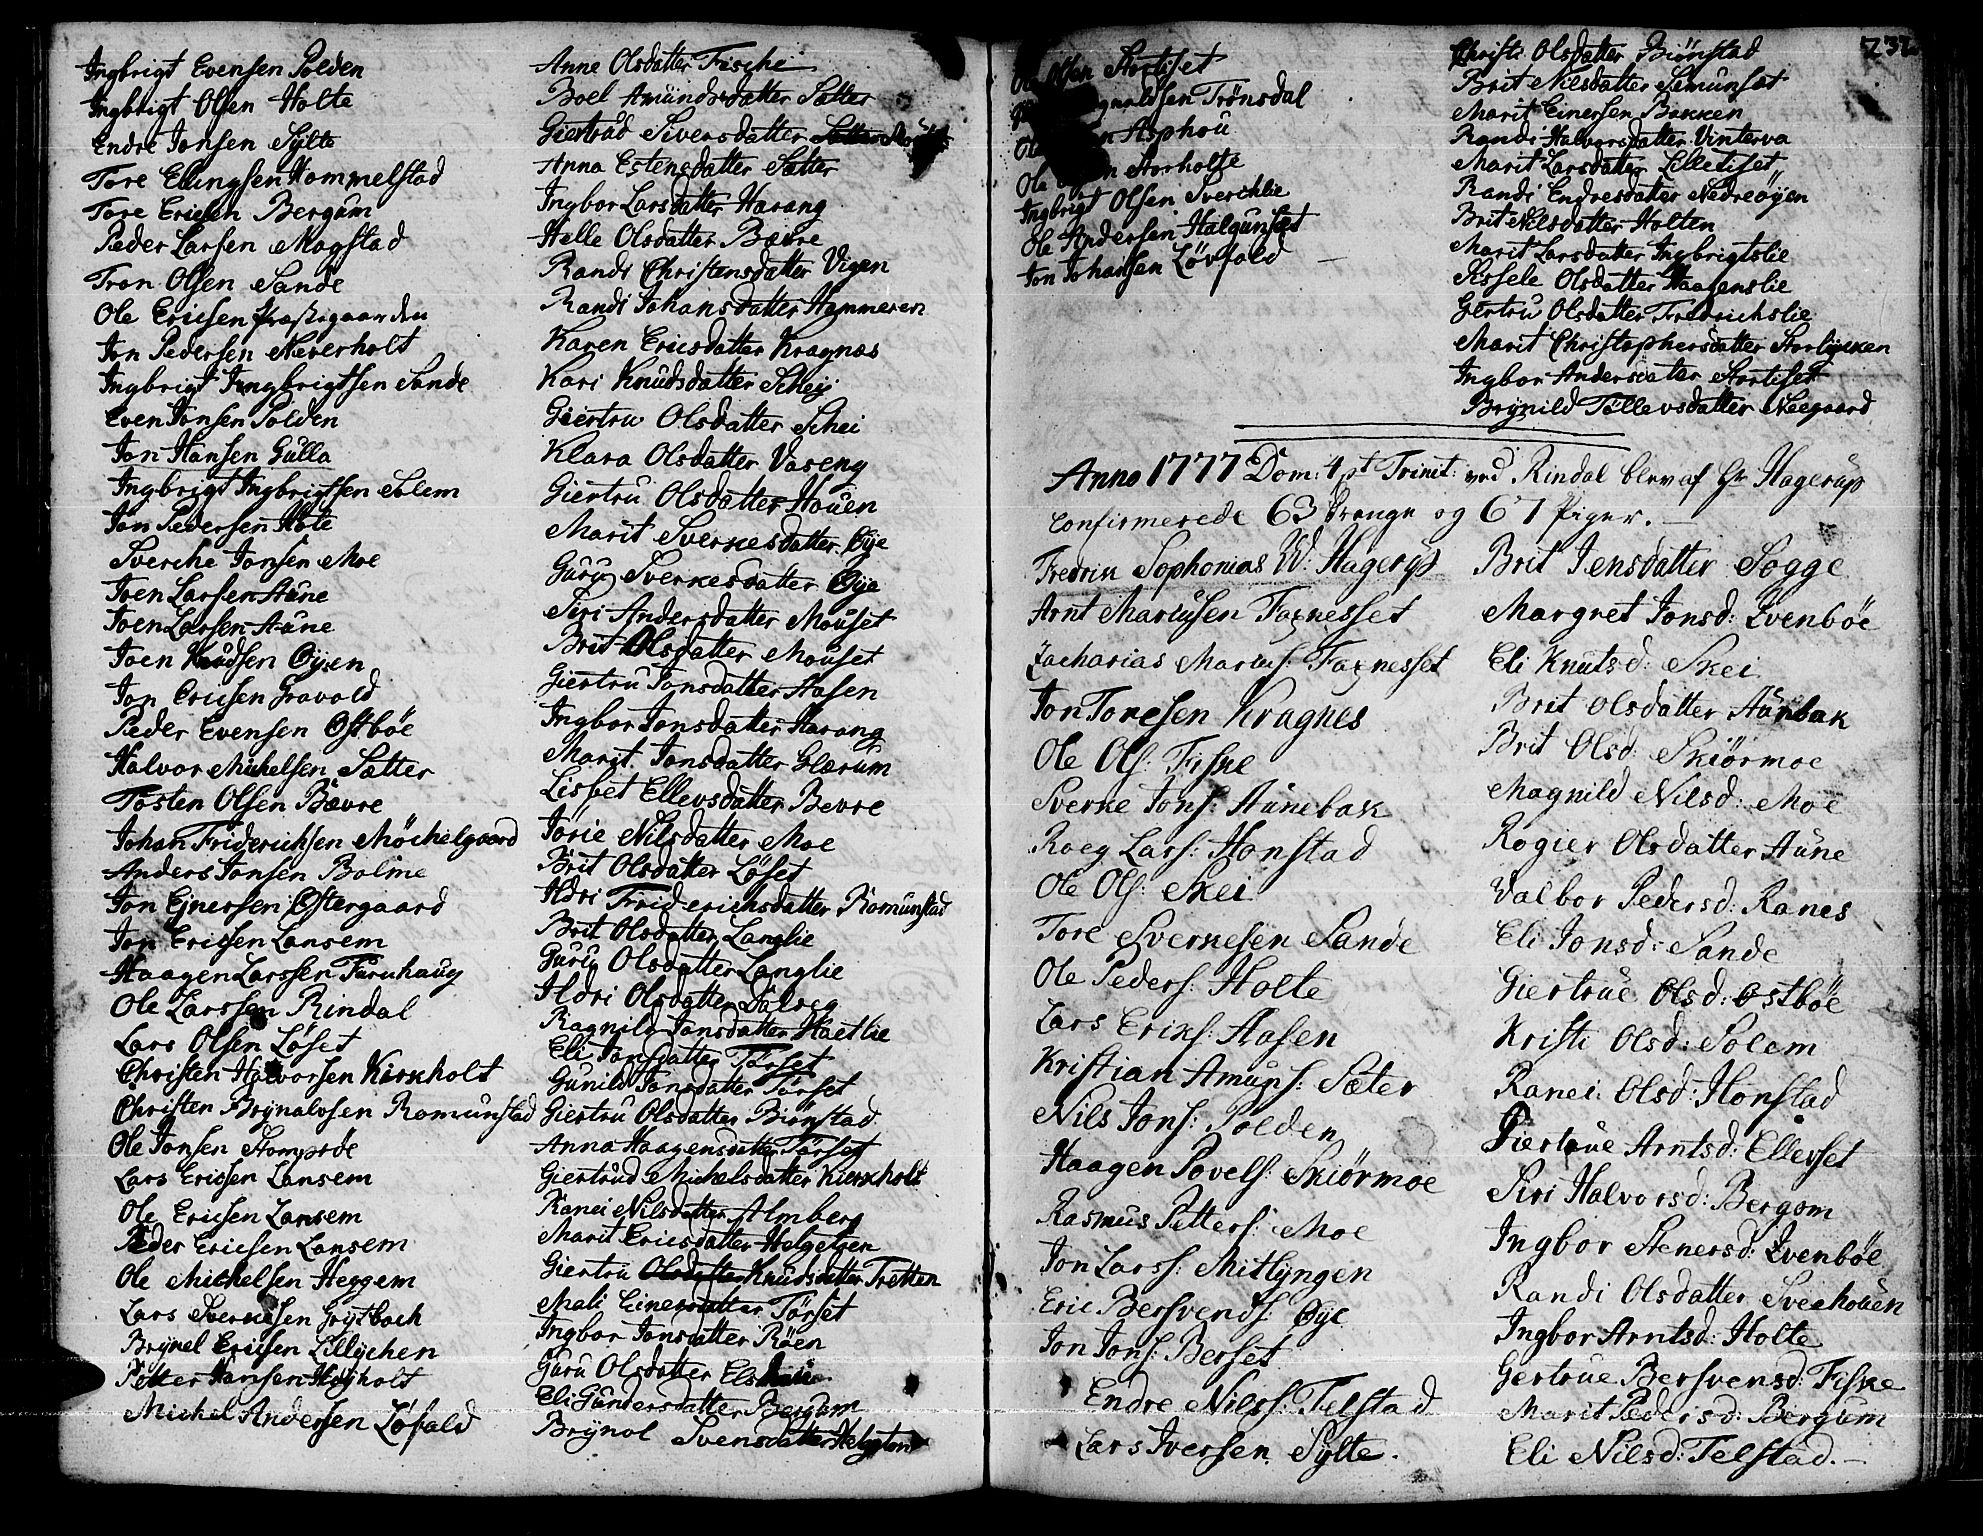 Ingbrigt Evensen Polden
Ingbrigt Olsen Holte
Endre Jonsen Sylte
Tore Ellingsen Hommelstad
Tore Ericsen Bergum
Peder Larsen Mogstad
Tron Olsen Sande
Ole Ericsen Præstegaarden
Jon Pedersen Neverholt
Ingbrigt Ingbrigtsen Sande
Even Jonsen Polden
Jon Hansen Gulla
Ingbrigt Ingbrigtsen Solem
Jon Pedersen Holte
Sverche Jonsen Moe
Joen Larsen Aune
Joen Larsen Aune
Joen Knudsen Øyen
Jon Ericsen Gravold
Peder Evensen Østbøe
Halvor Michelsen Sætter
Tosten Olsen Bævre
Johan Friderichsen Möchelgaard
Anders Jonsen Bolme
Jon Ejnersen Østergaard
Jon Ericsen Lansem
Haagen Larssen Furuhaug
Ole Larssen Rindal
Lars Olsen Löset
Christen Halvorsen Kirkholt
Christen Brynalvsen Romunstad
Ole Jonsen Stomprøe
Lars Ericsen Lansem
Ole Ericsen Lansem
Peder Ericsen Lansem
Ole Michelsen Heggem
Lars Sverkesen Grytbach
Brynel Ericsen Lillychen
Petter Hansen Høyholt
Michel Andersen Löfald
Anne Olsdatter Fische
Boel Amundsdatter Sætter
Giertrud Siversdatter Sætter
Anna Estensdatter Sætter
Ingbor Larsdatter Harang
Helle Olsdatter Bævre
Randi Christensdatter Vigen
Randi Johansdatter Hammeren
Karen Ericsdatter Kragnæs
Kari Knudsdatter Schej
Giertru Olsdatter Schei
Klara Olsdatter Vaseng
Giertru Olsdatter Houen
Marit Sverkesdatter Øye
Guru Sverkesdatter Øye
Siri Andersdatter Mouset
Brit Olsdatter Mouset
Giertru Jonsdatter Aasen
Ingbor Jonsdatter Harang
Marit Jonsdatter Glærum
Lisbet Ellevsdatter Bevre
Jorie Nilsdatter Moe
Brit Olsdatter Løset
Ildri Friderichsdatter Romunstad
Brit Olsdatter Langlie
Guru Olsdatter Langlie
Ildri Olsdatter Dalseg
Ragnild Jonsdatter Haetlie
Eli Jonsdatter Tørset
Gunild Jonsdatter Tørset
Giertru Olsdatter Biörstad
Anna Haagensdatter Tørset
Giertrud Michelsdatter Kirkholt
Ranei Nilsdatter Almberg
Marit Ericsdatter Helgetøen
Giertru Olsdatter Knudsdatter Tretten
Mali Einersdatter Tørset
Ingbor Jonsdatter Røen
Guru Olsdatter
Eli Gundersdatter Bergum
Brynol Svensdatter Helgeton
232
Ole Olsen Stortiset
Trønsdal
Asphou
Ole Storholte
Ingbrigt Olsen Sverchlie
Ole Andersen Halgunset
Jon Johansen Lövfald
Christi Olsdatter Biörstad
Brit Nilsdatter Semunset
Marit Einersen Bakken
Randi Halvorsdatter Vinterva
Marit Larsdatter Lilletiset
Randi Endresdater Nedreöyen
Brit Nilsdatter Holten
Marit Larsdatter Ingbrigtslie
Sissele Olsdatter Haagenslie
Giertru Olsdatter Fredrichslie
Marit Christophersdatter Storlykken
Ingbor Andersdater Stortiset
Brynild Tøllevsdatter Neegaard
Anno 1777 Dom: 4 pt Trinit: ved Rindal blev af Hr Hagerup
confirmerede 63 Drenge og 67 Piger.
Fredrik Sophonias W: Hagerup
Arnt Marcusen Faxnesset
Zacharias Marcus: Faxnesset
Jon Toresen Kragnes
Ole Ols: Fiske
Sverke Jons: Aunebak
Roeg Lars: Honstad
Ole Ols: Skei
Tore Sverkesen Sande
Ole Peders: Holte
Lars Eriks: Aasen
Kristian Amuns: Sæter
Nils Jons: Polden
Haagen Povels: Skiörmoe
Rasmus Petters: Moe
Jon Larss: Mitlyngen
Eric Bersvends: Øye
Jon Jons: Berset
Endre Nilss: Telstad
Lars Iversen Sylte.
Brit Jensdatter Sogge
Margret Jonsd: Evenbøe
Eli Knutsd: Skei
Brit Olsdatter Aunbak
Brit Olsd: Skiörmoe
Magnild Nilsd: Moe
Rogier Olsdatter Aune
Valbor Pedersd: Ranes
Eli Jonsd: Sande
Giertrue Olsd: Østbøe
Kristi Olsd: Solem
Ranei Olsd: Honstad
Giertrue Arntsd: Ellevset
Siri Halvorsd: Bergom
Ingbor Stenersd: Evenbøe
Randi Olsdatter Svechouen
Ingbor Arntsd: Holte
Gertrue Bersvensd: Fiske
Marit Pedersd: Bergum
Eli Nilsd: Telstad.